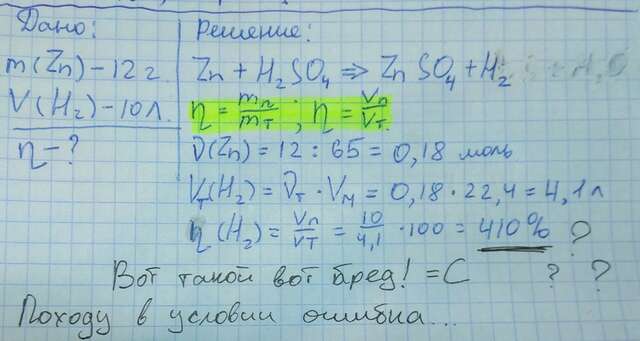 Дано:
Решение:
m(Zn) – 12 г
Zn + H₂SO₄ ⇒ ZnSO₄ + H₂
V(H₂) – 10 л.
η = mп/mт ; η = Vп/Vт.
η – ?
ν(Zn) = 12 : 65 = 0,18 моль
Vт(H₂) = νт · Vм = 0,18 · 22,4 = 4,1 л
η(H₂) = Vп/Vт = 10/4,1 · 100 = 410% ?
Вот такой вот бред! =С ? ?
Походу в условии ошибка...